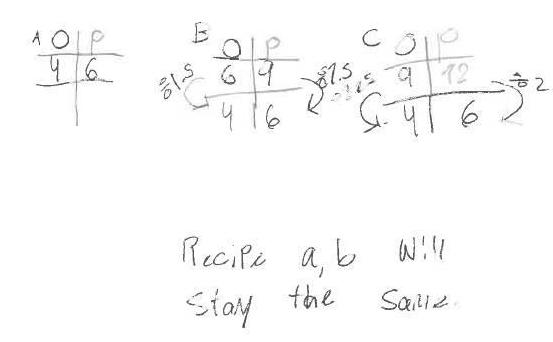 A O P
4 6
B O P
6 9
÷1.5 ÷1.5
4 6
C O P
9 12
÷2
4 6
Recipe a, b Will
Stay the Same.